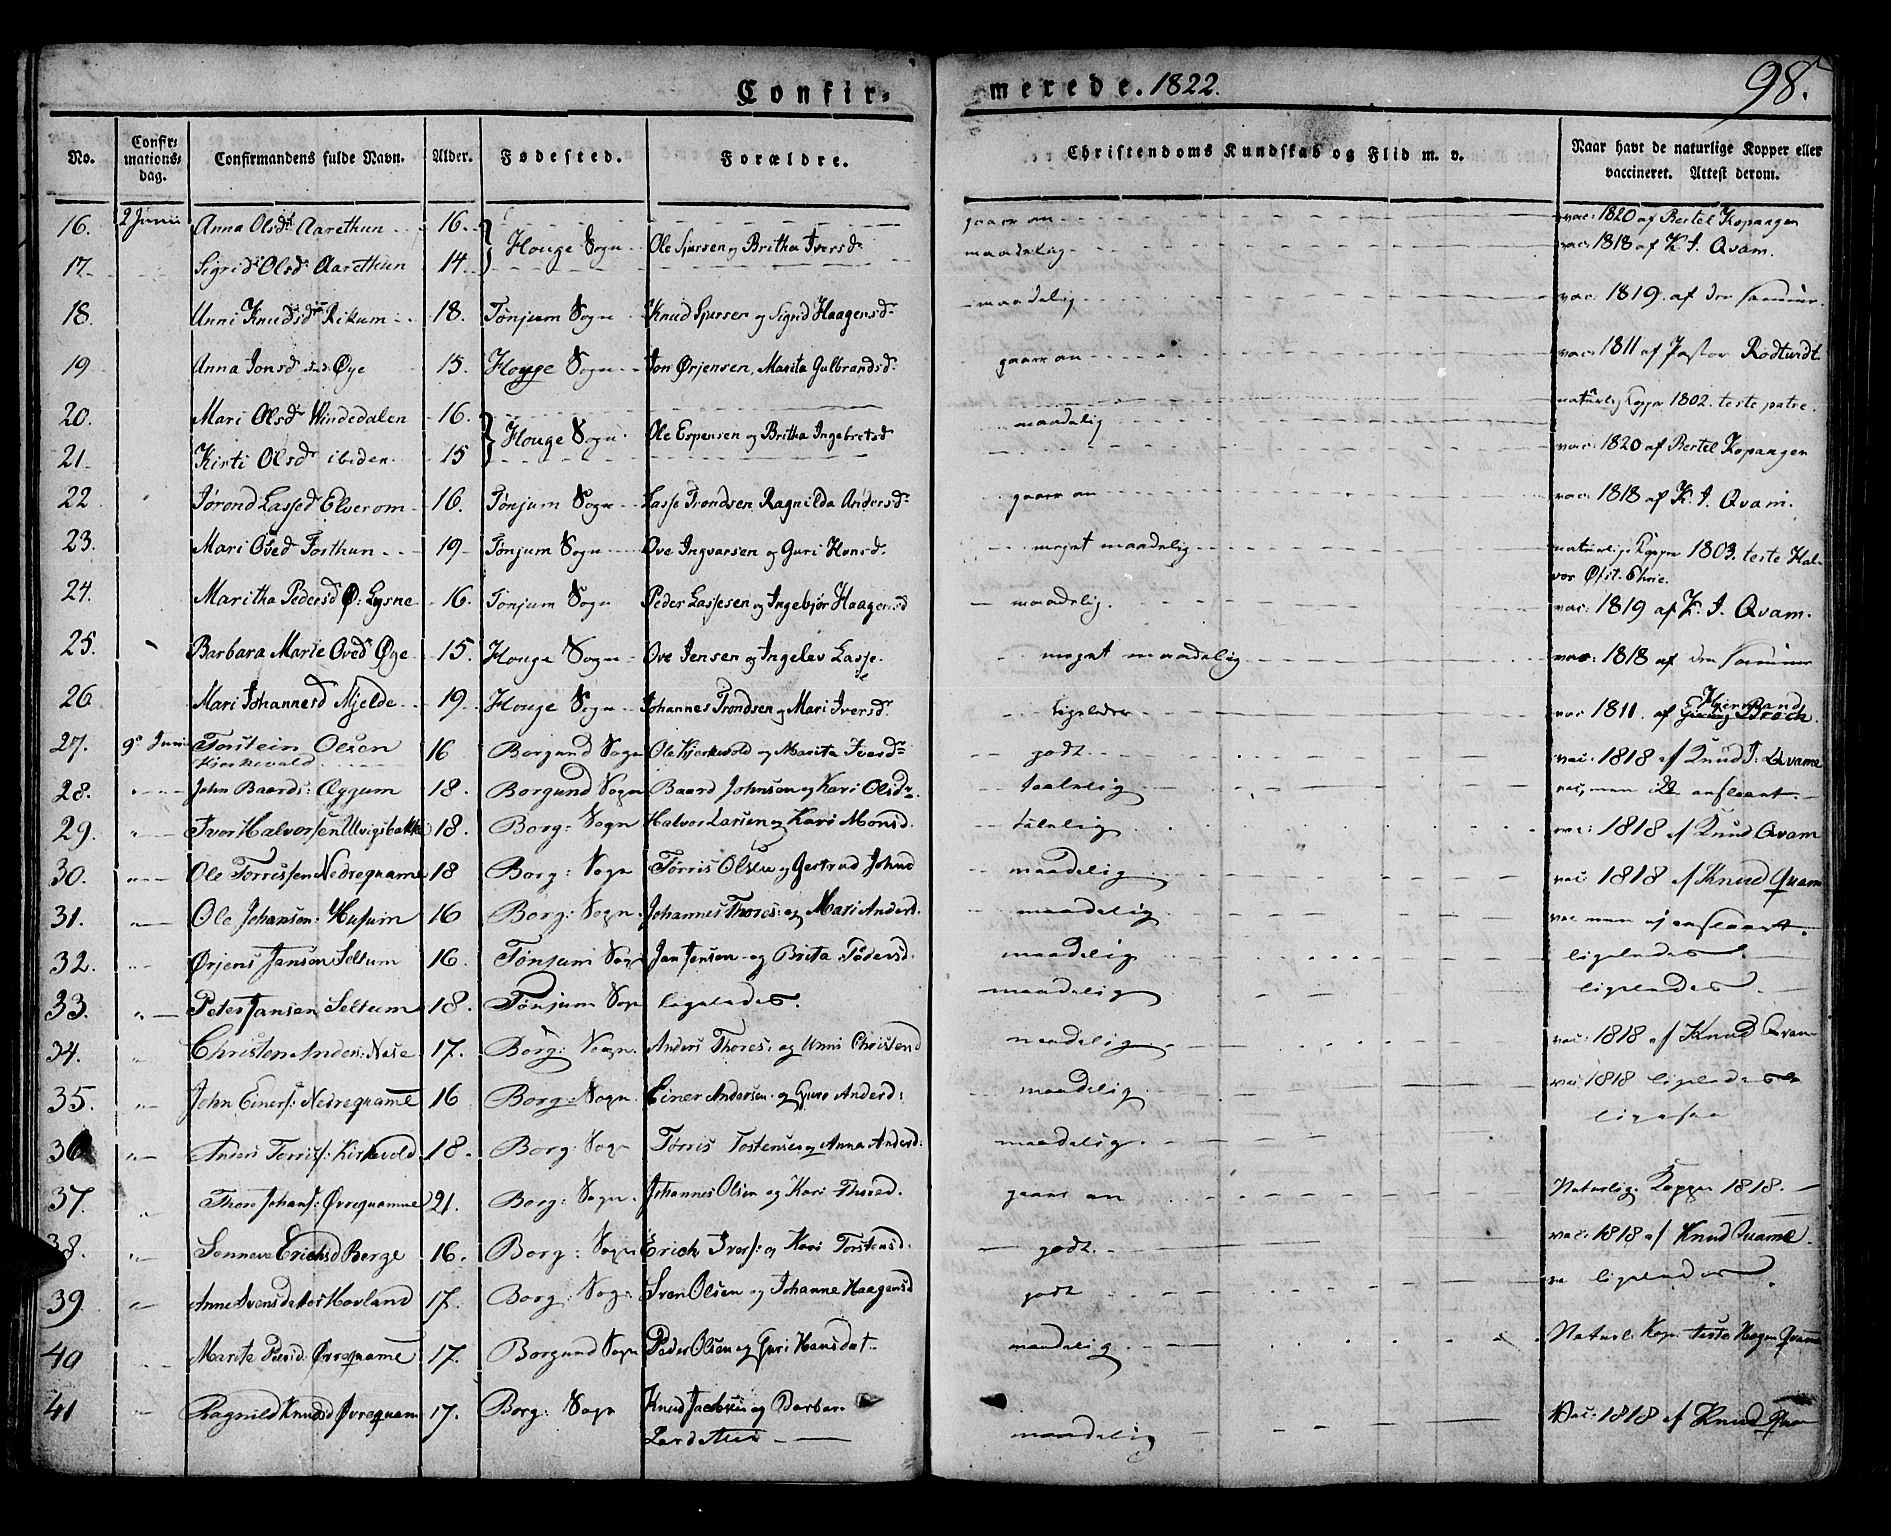 Confir-merede. 1822.
98.
No. Confirmationsdag. Confirmandens fulde Navn. Alder. Fødested. Forældre. Christendoms Kundskab og Flid m. v. Naar havt de naturlige Kopper eller vaccineret. Attest derom.
16. 2 Junii Anna Olsd Aarethun 16. Houge Sogn Ole Sjursen og Britha Iversd gaar an vac: 1820 af Bertel Kopangen
17. Sigrid Olsd Aarethun 14. maadelig vac: 1818 af K. J. Qvam.
18. Unni Knudsd Rikum 18. Tønjum Sogn Knud Sjursen og Sigrid Haagensd maadelig vac: 1819 af den samme.
19 Anna Jonsd Øye 15. Houge Sogn Jon Ørjensen, Marita Gulbrandsd gaar an vac: 1811 af Pastor
20. Mari Olsd Windedalen 16. Houge Sogn Ole Espensen og Britha Ingebretsd maadelig naturlig Kopper 1802. teste patre.
21 Kirsti Olsd ibidem 15 vac: 1820 af Bertel Kopangen
22 Jørond Lassed 16. Tønjum Sogn Lasse Trondsen Ragnilda Andersd gaar an vac: 1818 af K. J. Qvam.
23. Mari Oved Torthun 19 Tønjum Sogn Ove Ingvarsen og Guri Hansd. meget maadelig naturlige Kopper 1803. teste Halvor Øst. Ehrie.
24. Maritha Pedersd Ø: Lysne 16. Tonjum Sogn Peder Lassesen og Ingebjør Haagensd maadelig. vac: 1819 af K. J. Qvam.
25. Barbara Marie Oved Øye 15. Houge Sogn Ove Jensen og Ingelev Lasse. meget maadelig vac: 1818 af den samme
26 Mari Johannesd Mjelde 19 Houge Sogn Johannes Trondsen og Mari Iversd. ligeledes vac 1811. af Hjermand Broch.
27. 9de Junii Torstein Olsen Kjerkevold 16 Borgund Sogn Ole Kjerkevold og Marita Iversd godt vac: 1818 af Knud J: Qvame
28. John Baards: Eggum 18. Borgund Sogn Baard Johnson og Kari Olsdr. taalelig vac, men
29. Iver Halvorsen 18. Borg: Sogn Halvor Larsen og Kari Monsd. talelig vac: 1818 af Knud Qvam
30. Ole Torrissen Nedrequame 18 Borg: Sogn Tørris Olsen og Gertrud Johnd maadelig vac: 1818 af Knud Quam
31. Ole Johansen: Husum 16 Borg: Sogn. Johannes Thores: og Mari Anders. maadelig vac men
32. Ørjens Jansen Seltum 16. Tønjum Sogn Jan Jensen og Brita maadelig ligeledes
33. Peter Jansen Seltum 18. Tønjum Sogn ligeledes. maadelig ligeledes
34. Christen Anders: Nese 17. Borg: Sogn. Anders Thores: og Unni Christend maadelig vac: 1818 af Knud Qvam
35. John Einers: Nedrequame 16 Borg: Sogn. Einer Andersen og Guro Anderd: maadelig vac: 1818 ligeledes
36 Anders Torris: Kirkevold 18. Borg: Sogn Tørris Tostensen og Anna Andersd: maadelig. ligesaa
37. Thore Johans: Øvrequamme 21. Borg: Sogn. Johannes Olsen og Kari Thored. gaar an Naturlige Kopper 1818.
38. Sonneva Erichsd Berge 16. Borg: Sogn Erich Ivers: og Kari Torstensd. godt. vac: 1818 af Knud Quame
39 Anne Svensdatter Hovland 17. Borg: Sogn Sven Olsen og Johanne Haagensd godt ligeledes
40 Marite Pedersd: Øvrequame 17. Borgund Sogn Peder Olsen og Guri Hansdat maadelig Naturl: Kop: teste Hagen Qvame
41 Ragnild Knudsd Øvrequam 17. Borg: Sogn Knud Jacobsen og Barbar maadelig Vac: 1818 af Knud